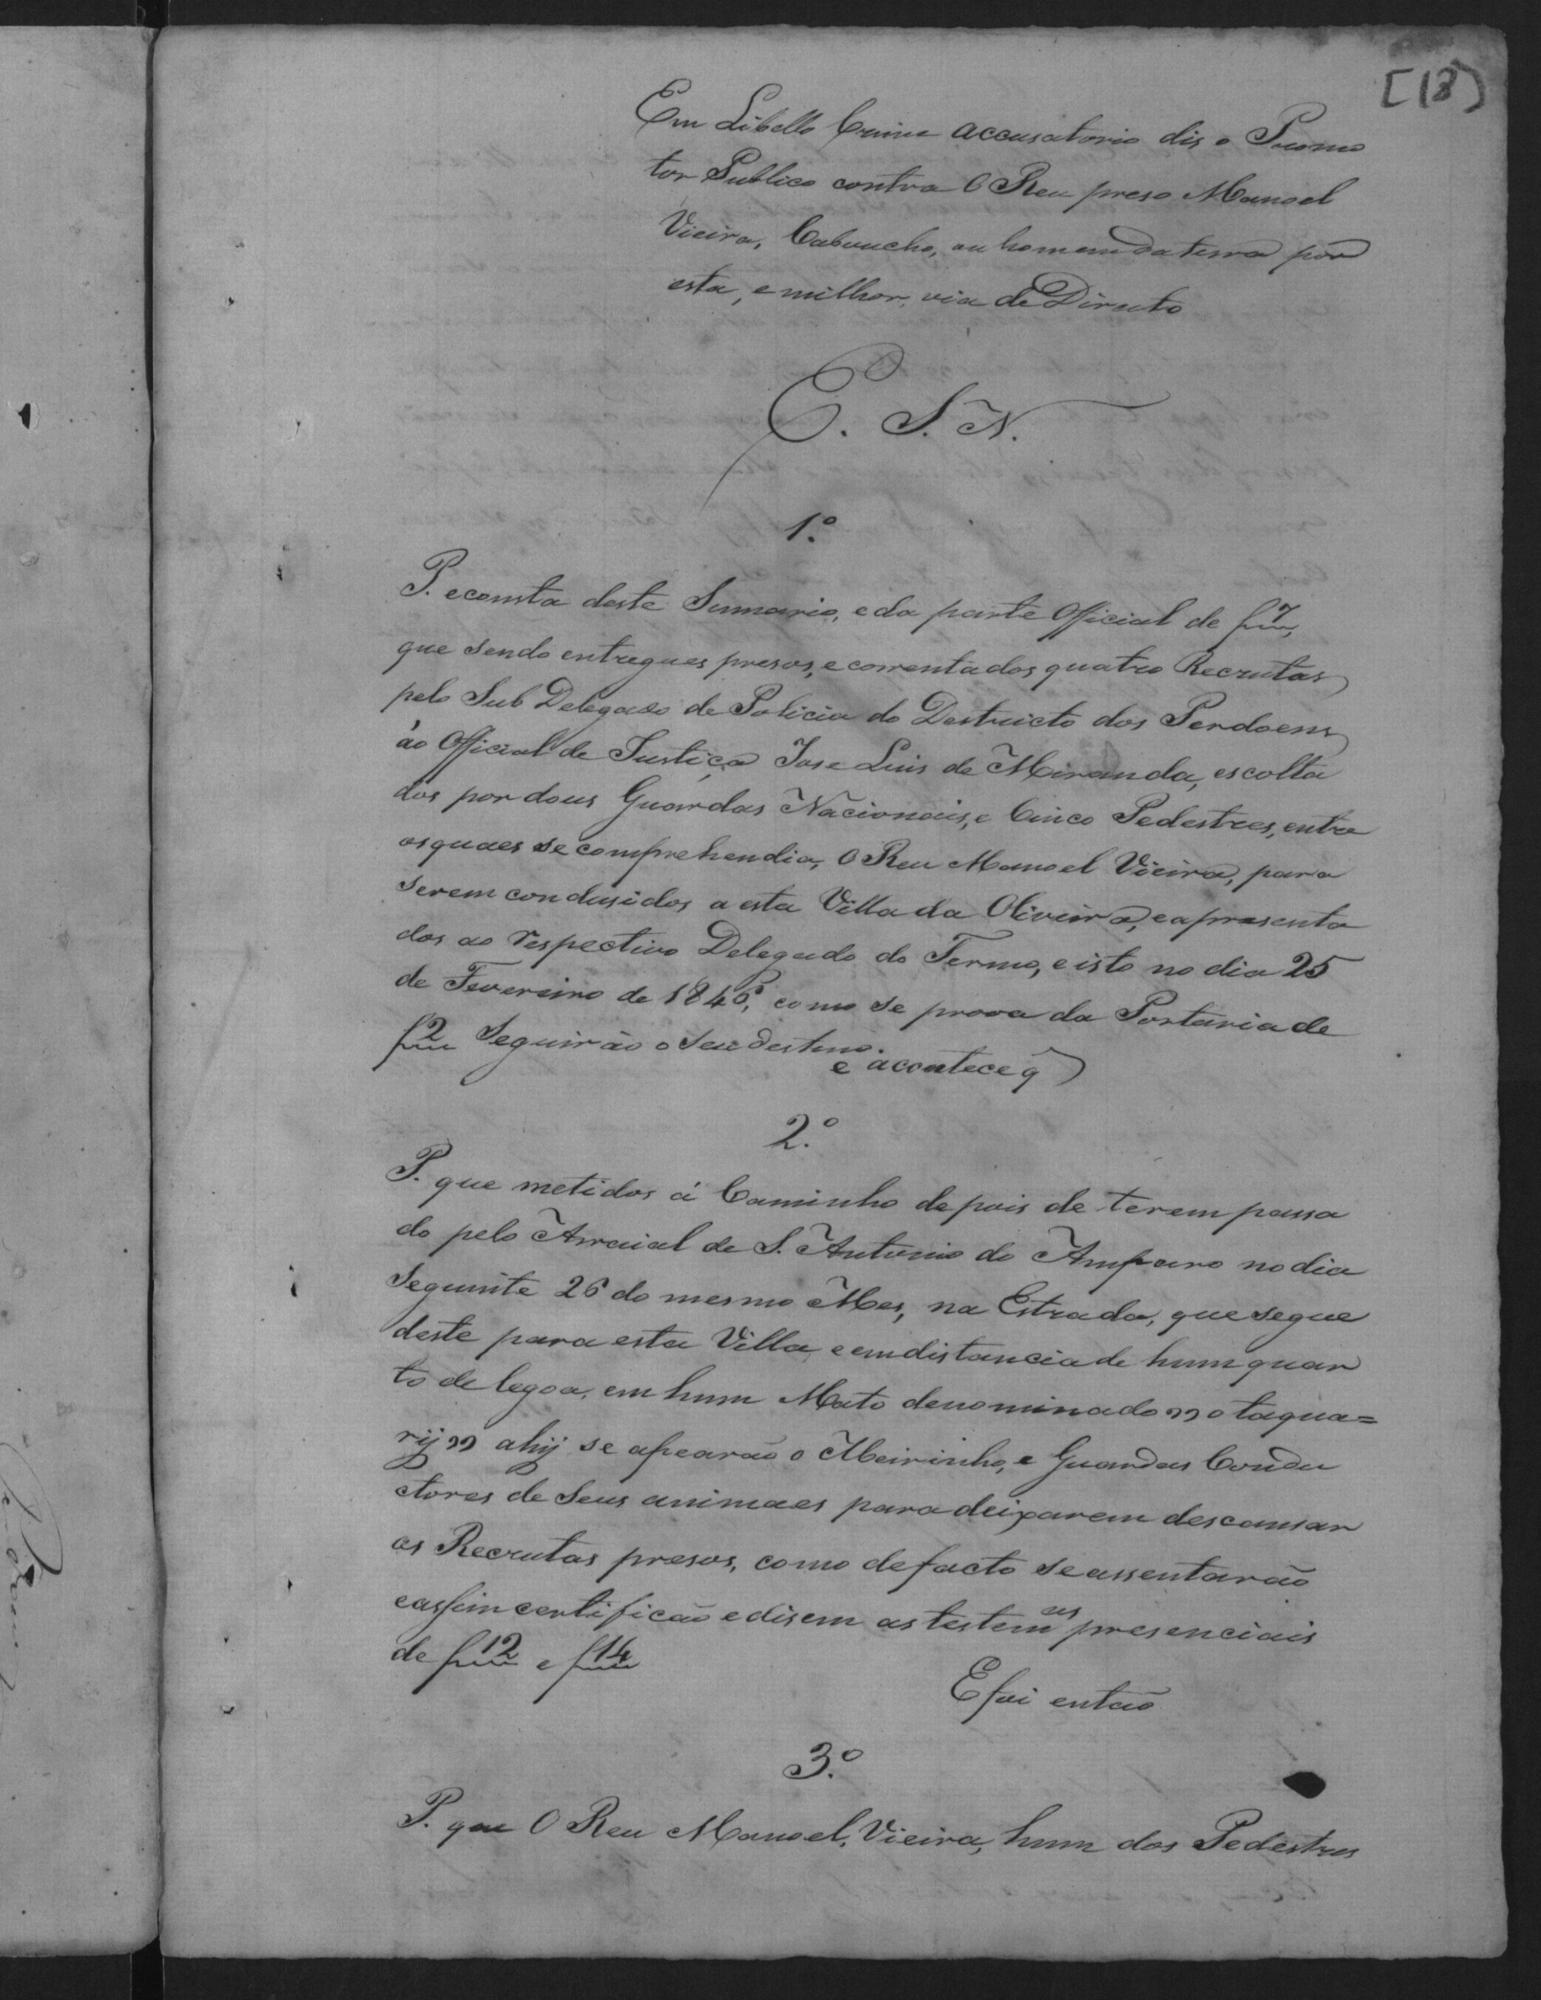 [18]
Em Libello Crime accusatorio dis o Promo
tor Publico contra O Reu preso Manoel
Vieira, Caboucho, ou homem da terra por
esta, e milhor, via de Direito
E. S. N.
1.º
P. e consta deste Sumario, e da parte Official de f 7,
que sendo entregues presos, e correntados quatro Recrutas
pelo Sub Delegado de Policia do Destricto dos Perdoens
áo Official de Justiça Jose Luis de Miranda, escolta
dos por dous Guardas Nacionais, e Cinco Pedestres, entre
os quaes se comprehendia, O Reu Manoel Vieira, para
serem condusidos a esta Villa da Oliveira, e apresenta
dos ao respectivo Delegado do Termo, e isto no dia 25
de Fevereiro de 1846, como se prova da Portaria de
f 2 Seguirão o seu destino.
e acontece q
2.º
P. que metidos á Caminho depois de terem passa
do pelo Arraial de S. Antonio do Amparo no dia
Seguinte 26 do mesmo Mes, na Estrada, que segue
deste para esta Villa, e em distancia de hum quar
to de legoa, em hum Mato denominado " o taqua=
rij " ahij se apearão o Meirinho, e Guardas Condu
ctores de seus animaes para deixarem descansar
os Recrutas presos, como de facto se assentarão
e assim certificão e disem as testem as presenciais
de f 12 e f 14
E foi então
3.º
P. que O Reu Manoel Vieira, hum dos Pedestres